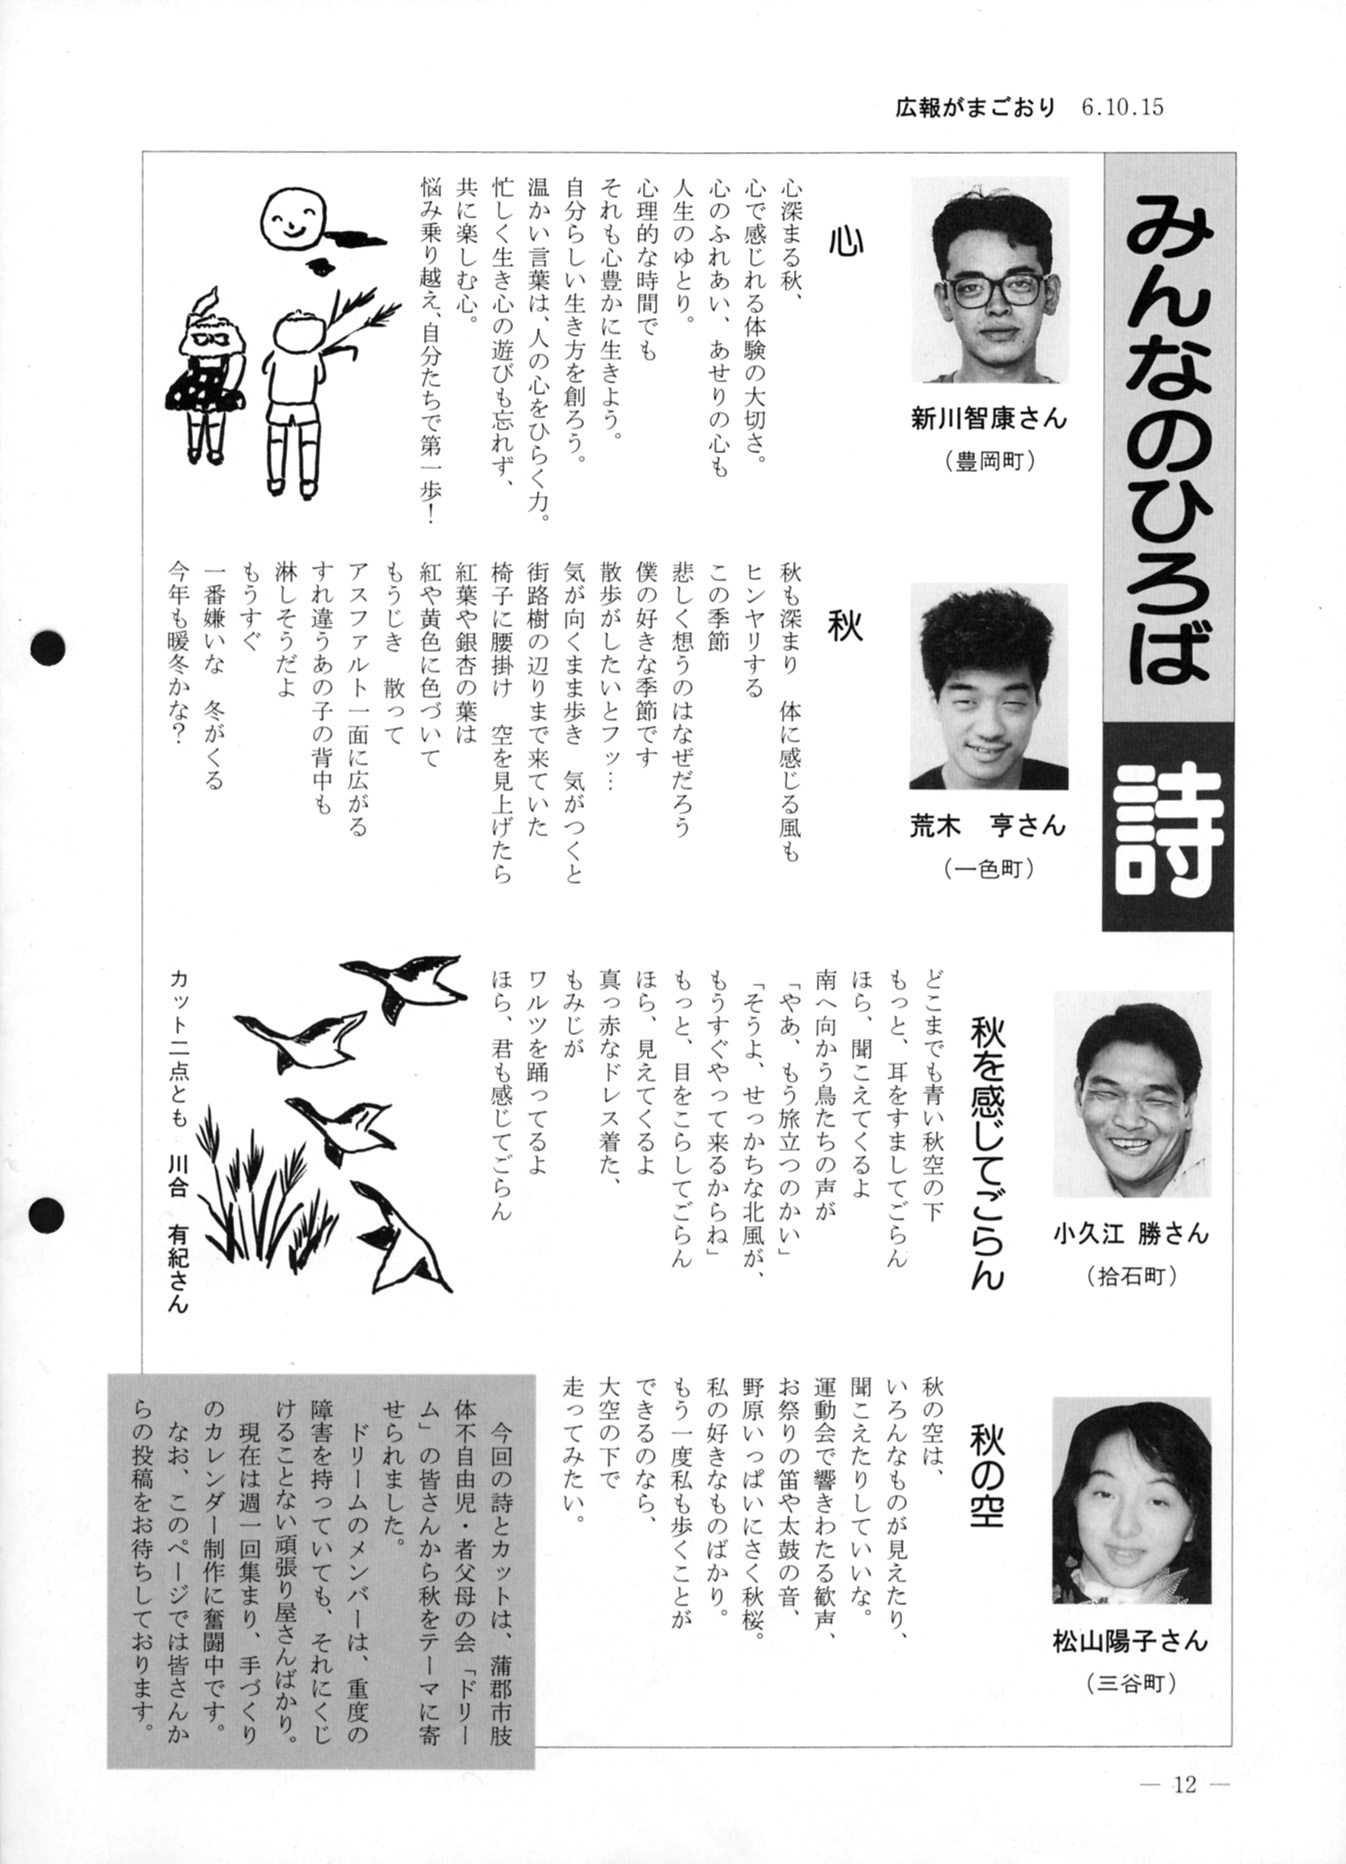 広報がまごおり 6.10.15
みんなのひろば
詩
新川智康さん
（豊岡町）
心
心深まる秋、
心で感じれる体験の大切さ。
心のふれあい、あせりの心も
人生のゆとり。
心理的な時間でも
それも心豊かに生きよう。
自分らしい生き方を創ろう。
温かい言葉は、人の心をひらく力。
忙しく生き心の遊びも忘れず、
共に楽しむ心。
悩み乗り越え、自分たちで第一歩！
荒木　亨さん
（一色町）
秋
秋も深まり　体に感じる風も
ヒンヤリする
この季節
悲しく想うのはなぜだろう
僕の好きな季節です
散歩がしたいとフッ…
気が向くまま歩き　気がつくと
街路樹の辺りまで来ていた
椅子に腰掛け　空を見上げたら
紅葉や銀杏の葉は
紅や黄色に色づいて
もうじき　散って
アスファルト一面に広がる
すれ違うあの子の背中も
淋しそうだよ
もうすぐ
一番嫌いな　冬がくる
今年も暖冬かな？
小久江 勝さん
（拾石町）
秋を感じてごらん
どこまでも青い秋空の下
もっと、耳をすましてごらん
ほら、聞こえてくるよ
南へ向かう鳥たちの声が
「やあ、もう旅立つのかい」
「そうよ、せっかちな北風が、
もうすぐやって来るからね」
もっと、目をこらしてごらん
ほら、見えてくるよ
真っ赤なドレス着た、
もみじが
ワルツを踊ってるよ
ほら、君も感じてごらん
カット二点とも　川合　有紀さん
松山陽子さん
（三谷町）
秋の空
秋の空は、
いろんなものが見えたり、
聞こえたりしていいな。
運動会で響きわたる歓声、
お祭りの笛や太鼓の音、
野原いっぱいにさく秋桜。
私の好きなものばかり。
もう一度私も歩くことが
できるのなら、
大空の下で
走ってみたい。
今回の詩とカットは、蒲郡市肢
体不自由児・者父母の会「ドリー
ム」の皆さんから秋をテーマに寄
せられました。
ドリームのメンバーは、重度の
障害を持っていても、それにくじ
けることない頑張り屋さんばかり。
現在は週一回集まり、手づくり
のカレンダー制作に奮闘中です。
なお、このページでは皆さんか
らの投稿をお待ちしております。
— 12 —